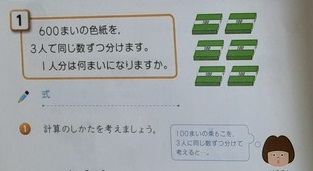 1
600まいの色紙を,
3人で同じ数ずつ分けます。
1人分は何まいになりますか。
式
1 計算のしかたを考えましょう。
100まいの束6こを,
3人に同じ数ずつ分けて
考えると…。